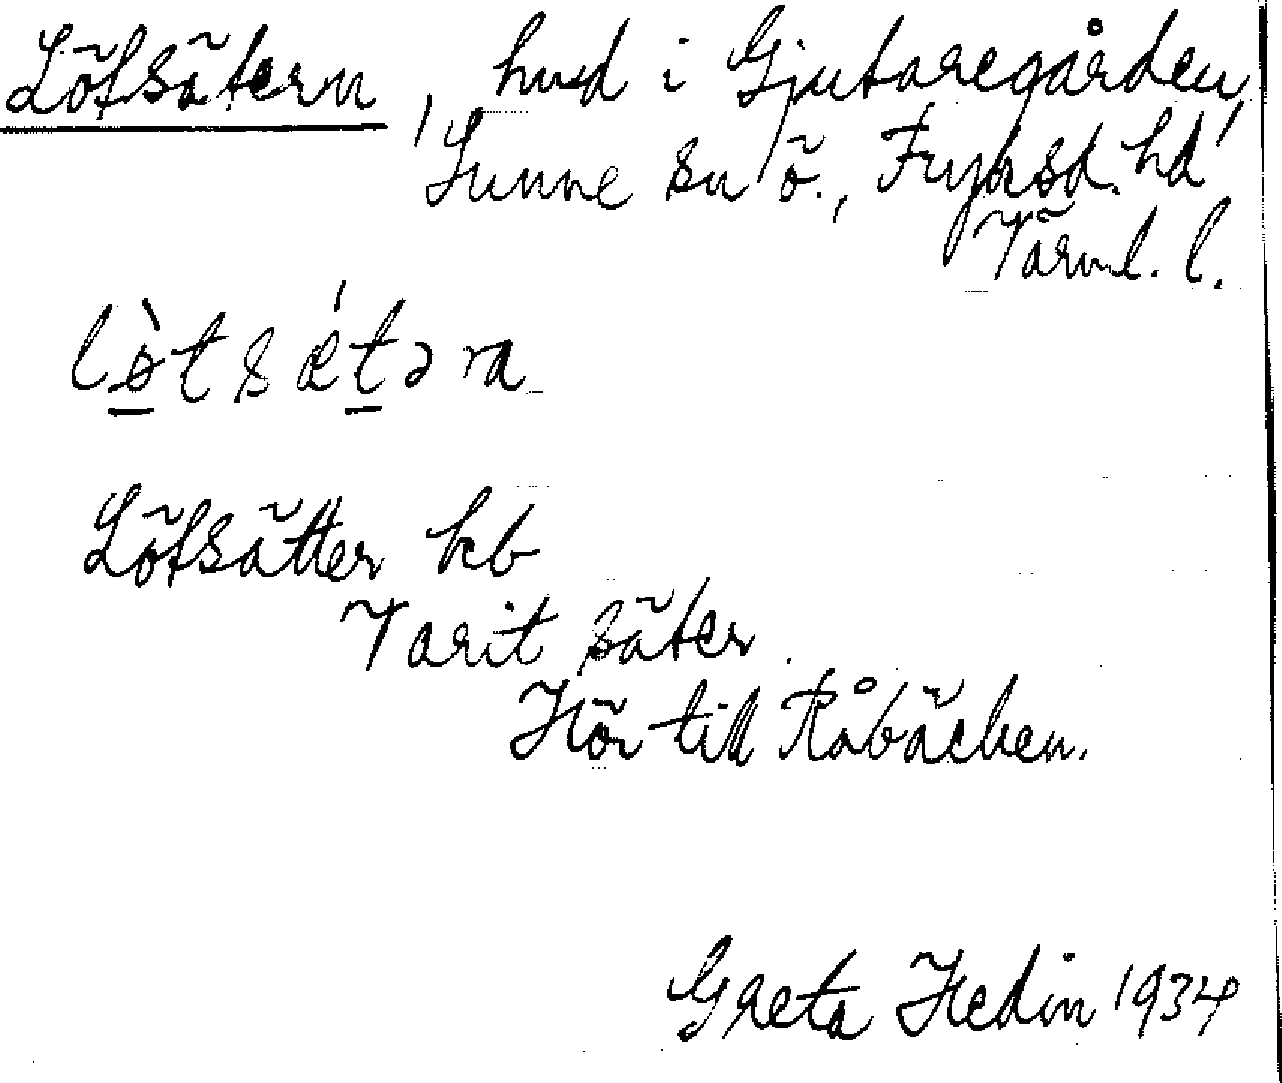 Löfsätern, hmd i Gjutaregården,
Sunne sn ö., Fryksd. hd,
Värml. l.
lø̀tsǽtəra
Löfsätter kb
Varit säter
Hör till Råbäcken.
Greta Hedin 1934